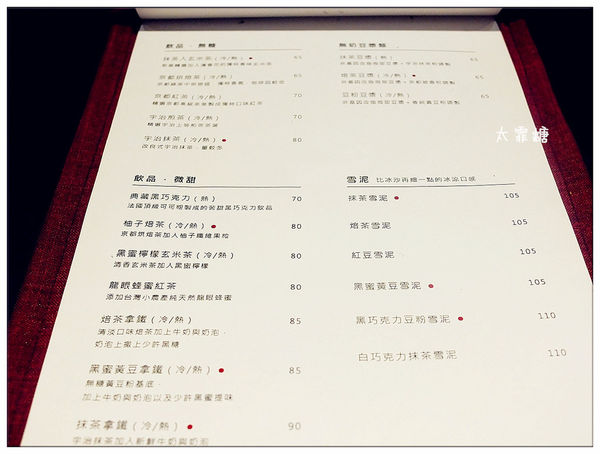 飲品 · 無糖
抹茶入玄米茶(冷/熱) 65
京都烘焙茶(冷/熱) 65
京都紅茶(冷/熱) 70
宇治煎茶(冷/熱) 70
宇治抹茶(冷/熱) ● 80
飲品 · 微甜
典藏黑巧克力(熱) 70
法國頂級可可複製成的裝甜黑巧克力飲品
柚子焙茶(冷/熱) ● 80
京都烘焙茶加入柚子纖維果粒
黑蜜檸檬玄米茶(冷/熱) 80
清香玄米茶加入黑蜜檸檬
龍眼蜂蜜紅茶 80
添加台灣小農產純天然龍眼蜂蜜
焙茶拿鐵(冷/熱) 85
清淡口味焙茶加上牛奶與奶泡,
奶泡上撒上少許黑糖
黑蜜黃豆拿鐵(冷/熱) ● 85
無糖黃豆粉基底,
加上牛奶與奶泡以及少許黑蜜提味
抹茶拿鐵(冷/熱) ● 90
宇治抹茶加入新鮮牛奶與奶泡
無奶豆漿類
抹茶豆漿(冷/熱) 65
焙茶豆漿(冷/熱) ● 65
豆粉豆漿(冷/熱) 65
雪泥 比冰沙再細一點的冰涼口感
抹茶雪泥 ● 105
焙茶雪泥 105
紅豆雪泥 105
黑蜜黃豆雪泥 ● 105
黑巧克力豆粉雪泥 ● 110
白巧克力抹茶雪泥 110
太霏糖